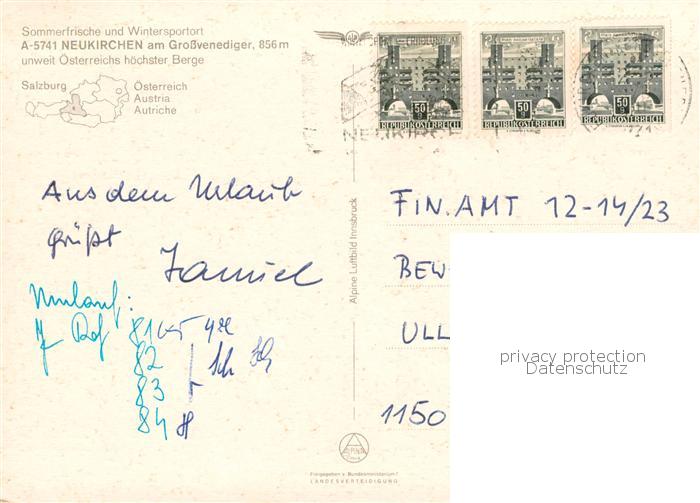 Sommerfrische und Wintersportort
A-5741 NEUKIRCHEN am Großvenediger, 856 m
unweit Österreichs höchster Berge
Salzburg
Österreich
Austria
Autriche
50 g
REPUBLIK ÖSTERREICH
50 g
REPUBLIK ÖSTERREICH
50 g
REPUBLIK ÖSTERREICH
Aus dem Urlaub
grüßt
Umlauf:
81
82
83
84
Alpine Luftbild Innsbruck
FIN. AMT 12-14/23
BEW
ULL
1150
privacy protection
Datenschutz
ALPINE
Freigegeben v. Bundesministerium f.
LANDESVERTEIDIGUNG